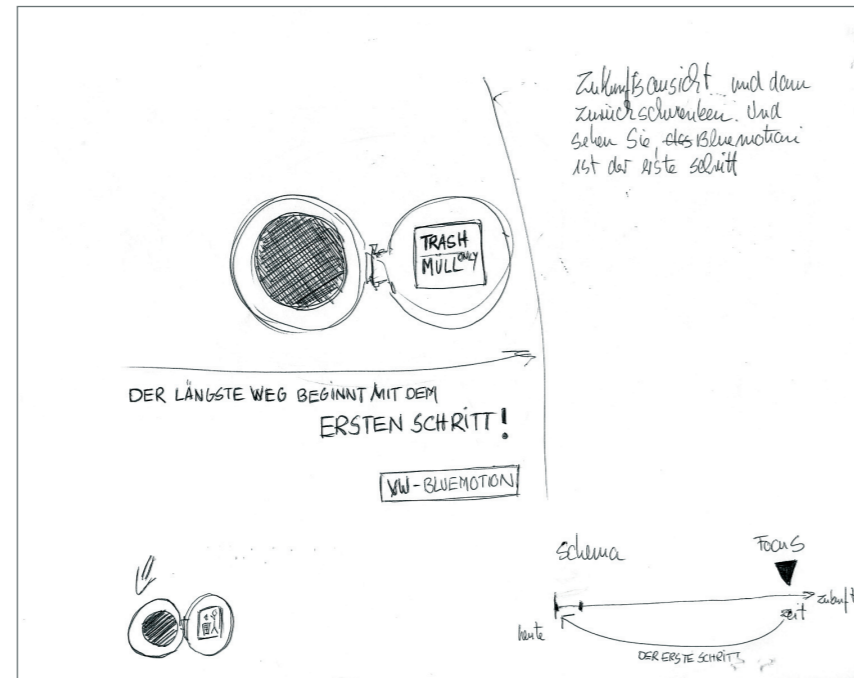 Zukunftsansicht und dann
zurückschwenken. Und
sehen Sie, das Bluemotion
ist der erste Schritt
TRASH
MÜLL ONLY
DER LÄNGSTE WEG BEGINNT MIT DEM
ERSTEN SCHRITT!
VW-BLUEMOTION
Schema
Focus
Zukunft
Zeit
heute
DER ERSTE SCHRITT